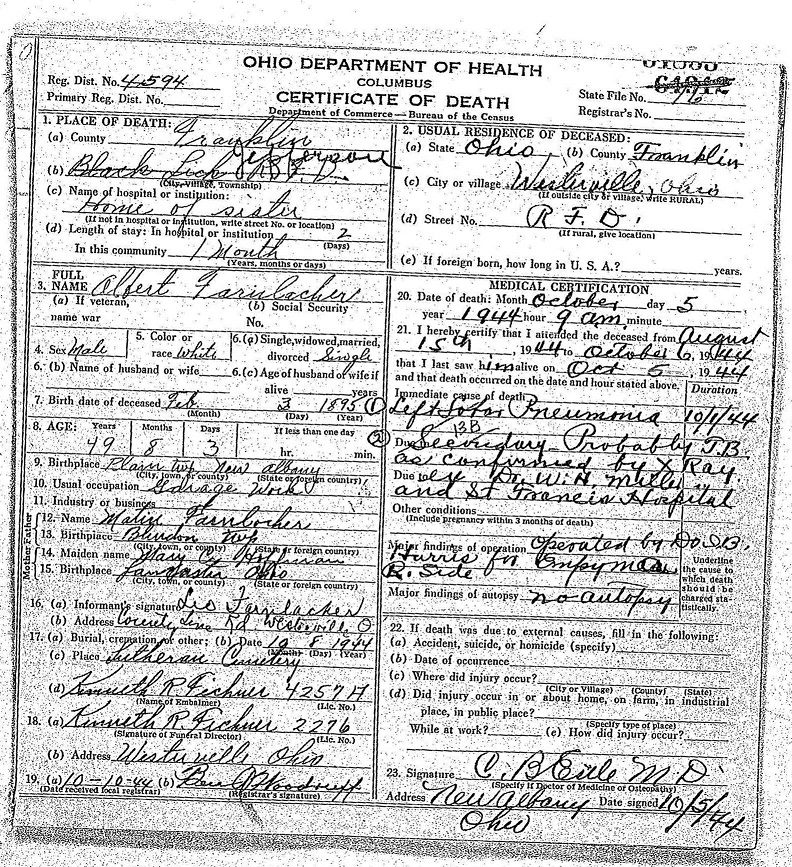 OHIO DEPARTMENT OF HEALTH
COLUMBUS
CERTIFICATE OF DEATH
Department of Commerce—Bureau of the Census
Reg. Dist. No. 4594
Primary Reg. Dist. No.
State File No.
Registrar's No.
1. PLACE OF DEATH:
(a) County Franklin
Jefferson
(b) Black Lick
(City, Village, Township)
(c) Name of hospital or institution:
Home of sister
(If not in hospital or institution, write street No. or location)
(d) Length of stay: In hospital or institution 2
(Days)
In this community 1 Month
(Years, months or days)
2. USUAL RESIDENCE OF DECEASED:
(a) State Ohio (b) County Franklin
(c) City or village Westerville, Ohio
(If outside city or village, write RURAL)
(d) Street No. R F D.
(If rural, give location)
(e) If foreign born, how long in U. S. A.? years.
3. FULL NAME Albert Farnlacher
(a) If veteran, name war
(b) Social Security No.
4. Sex Male
5. Color or race White
6. (a) Single, widowed, married, divorced Single
6. (b) Name of husband or wife
6. (c) Age of husband or wife if alive years
7. Birth date of deceased Feb. 3 1895
(Month) (Day) (Year)
8. AGE: Years Months Days If less than one day
49 8 3 hr. min.
9. Birthplace Plain Twp New Albany
(City, town, or county) (State or foreign country)
10. Usual occupation Garage Work
11. Industry or business
Father
12. Name Farnlacher
13. Birthplace Blendon Twp
(City, town, or county) (State or foreign country)
Mother
14. Maiden name Mary C. Hoffman
15. Birthplace Lancaster Ohio
(City, town, or county) (State or foreign country)
16. (a) Informant's signature Leo Farnlacher
(b) Address County Line Rd Westerville O
17. (a) Burial, cremation, or other: (b) Date 10 8 1944
(Month) (Day) (Year)
(c) Place Lutheran Cemetery
(d) Kenneth R Fichner 4257A
(Name of Embalmer) (Lic. No.)
18. (a) Kenneth R Fichner 2276
(Signature of Funeral Director) (Lic. No.)
(b) Address Westerville Ohio
19. (a) 10-10-44 (b) Woodruff
(Date received local registrar) (Registrar's signature)
MEDICAL CERTIFICATION
20. Date of death: Month October day 5
year 1944 hour 9 am. minute
21. I hereby certify that I attended the deceased from August
15th, 1944 to October 6, 1944
that I last saw him alive on Oct 5, 1944
and that death occurred on the date and hour stated above.
Duration
Immediate cause of death
Left Lobar Pneumonia 10/1/44
13B
Due Secondary - Probably T.B.
as confirmed by X Ray.
Due by Dr. W.H. Miller
and St Francis Hospital
Other conditions
(Include pregnancy within 3 months of death)
Major findings of operation Operated by
Harris for Empymea
R. Side
Major findings of autopsy no autopsy
Underline the cause to which death should be charged statistically
22. If death was due to external causes, fill in the following:
(a) Accident, suicide, or homicide (specify)
(b) Date of occurrence
(c) Where did injury occur?
(City or Village) (County) (State)
(d) Did injury occur in or about home, on farm, in industrial
place, in public place?
(Specify type of place)
While at work? (e) How did injury occur?
23. Signature C. B Eitle M D
(Specify if Doctor of Medicine or Osteopathy)
Address New Albany Ohio Date signed 10/5/44